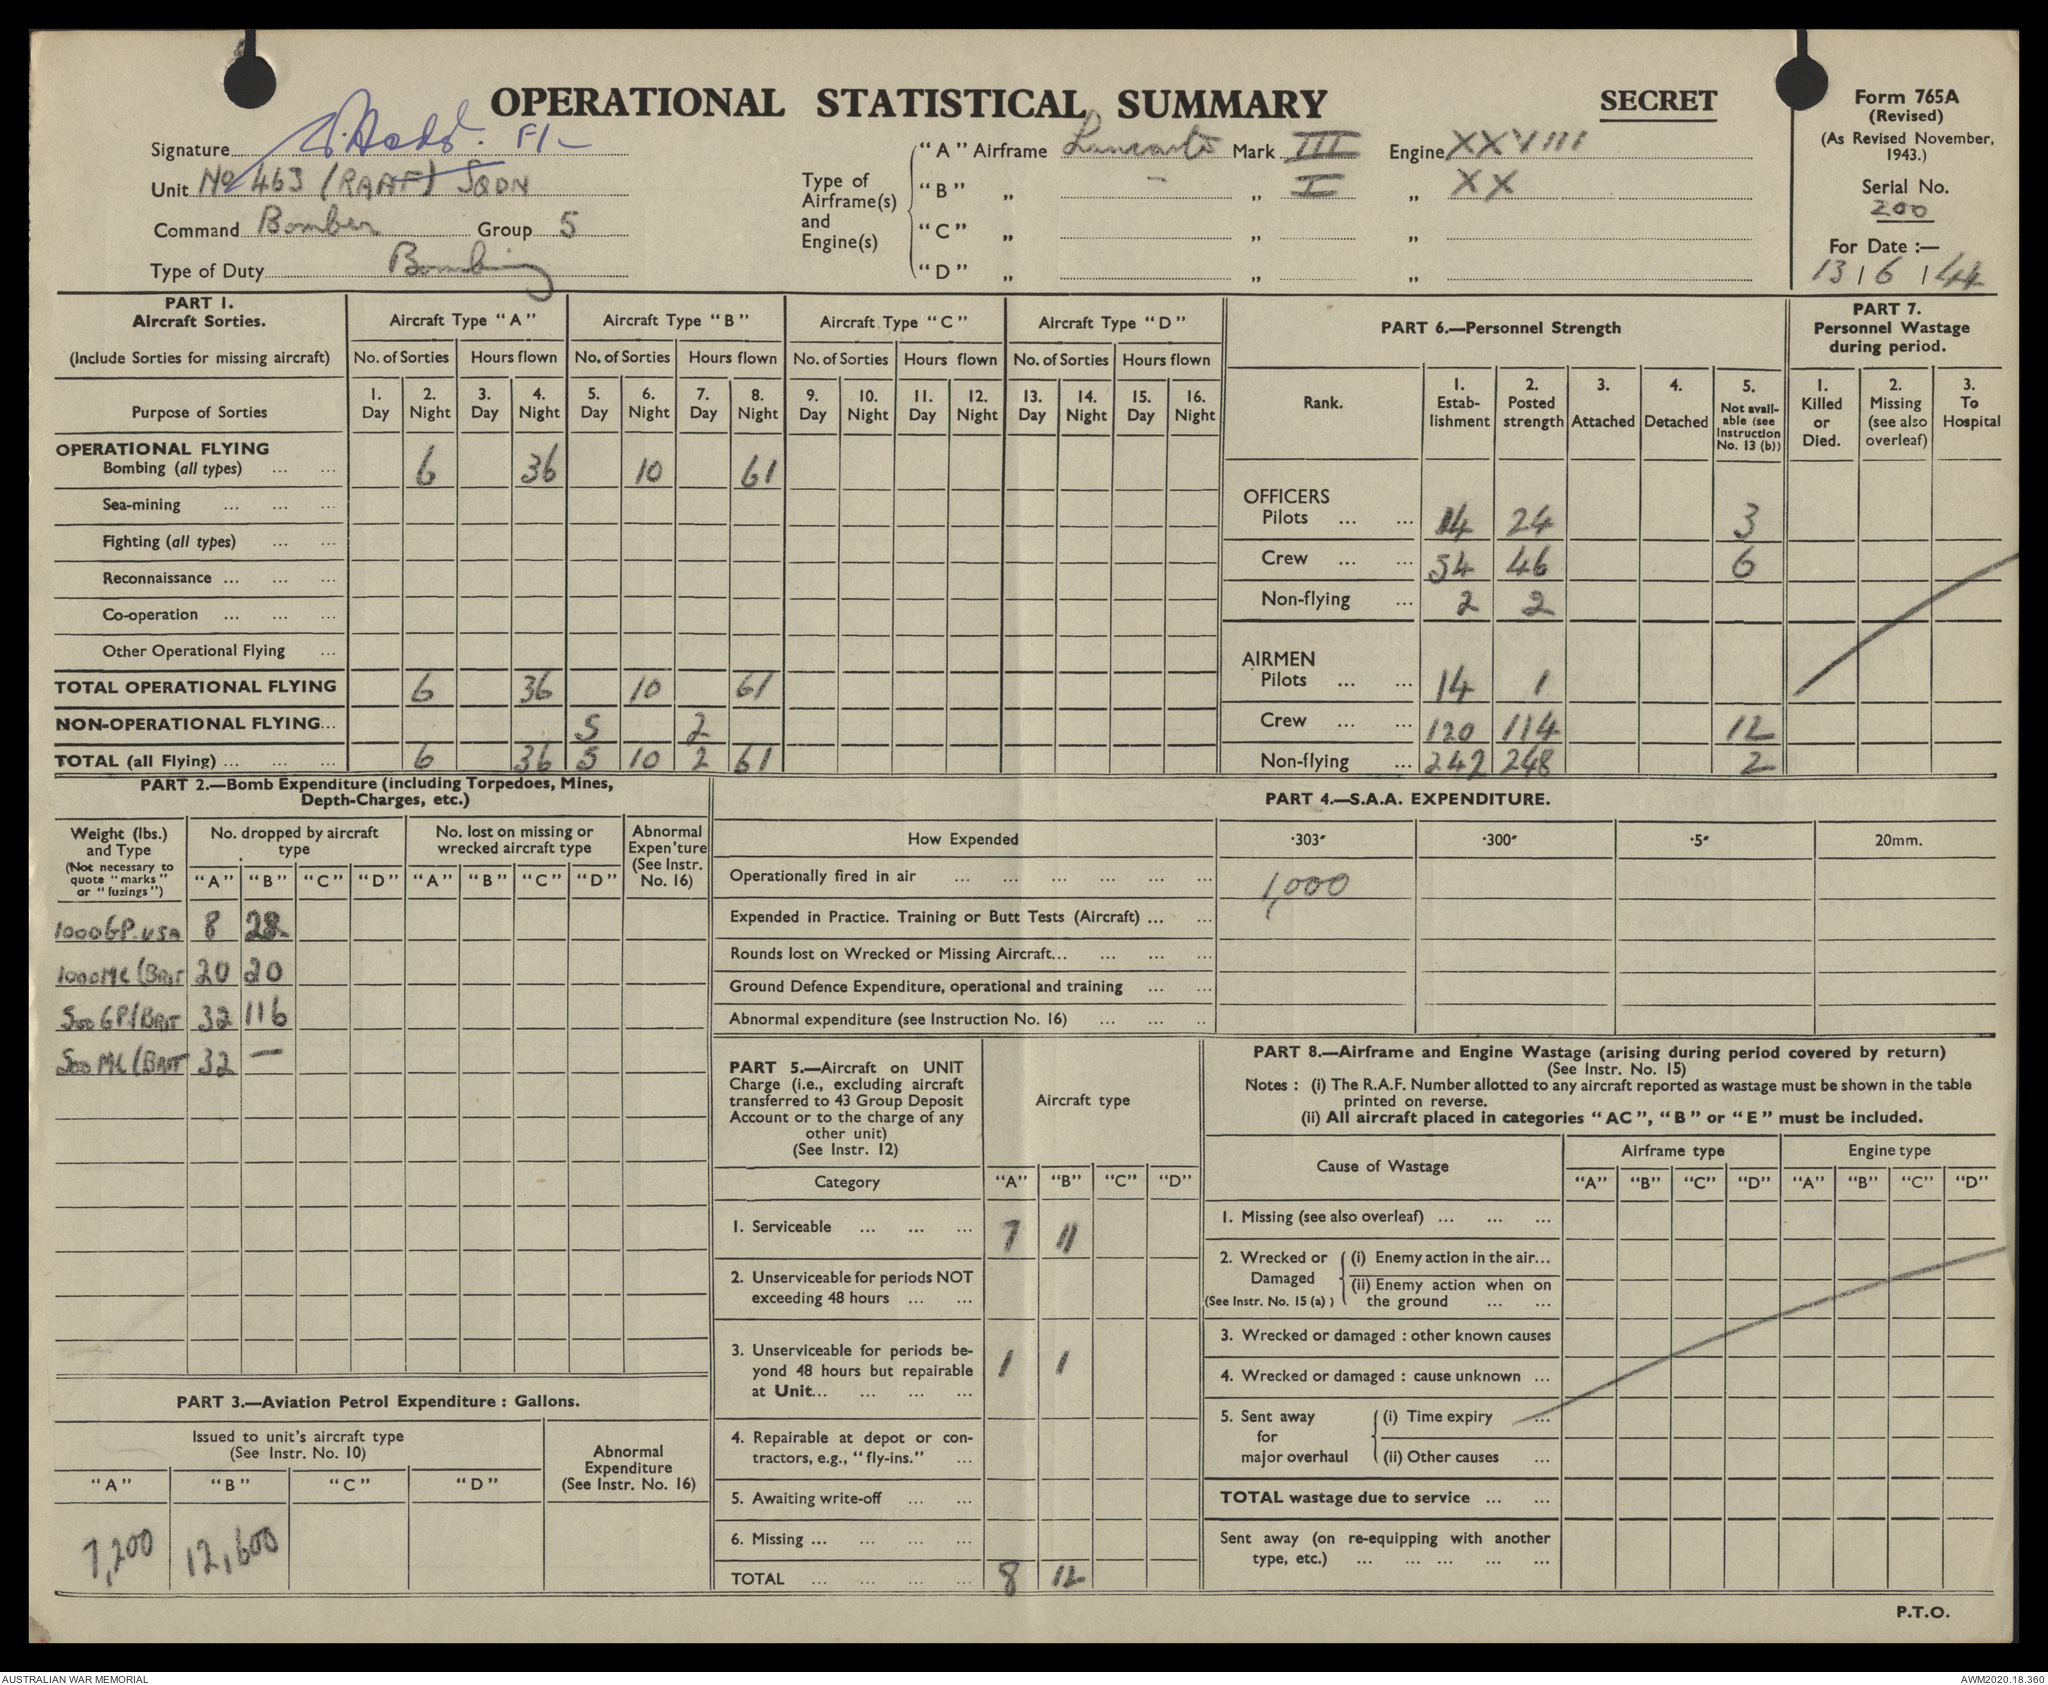 OPERATIONAL STATISTICAL SUMMARY
SECRET
Form 765A
(Revised)
(As Revised November, 1943.)
Serial No.
200
For Date :—
13 / 6 / 44
Signature
Unit No 463 (RAAF) SQDN
Command Bomber Group 5
Type of Duty Bombing
Type of Airframe(s) and Engine(s)
"A" Airframe Lancaster Mark III Engine XXVIII
"B" „ — „ I „ XX
"C" „ „ „
"D" „ „ „
PART 1.
Aircraft Sorties.
(Include Sorties for missing aircraft)
Aircraft Type "A" Aircraft Type "B" Aircraft Type "C" Aircraft Type "D"
No. of Sorties Hours flown No. of Sorties Hours flown No. of Sorties Hours flown No. of Sorties Hours flown
Purpose of Sorties
1. Day 2. Night 3. Day 4. Night 5. Day 6. Night 7. Day 8. Night 9. Day 10. Night 11. Day 12. Night 13. Day 14. Night 15. Day 16. Night
OPERATIONAL FLYING
Bombing (all types) ... ... 6 36 10 61
Sea-mining ... ... ...
Fighting (all types) ... ...
Reconnaissance ... ... ...
Co-operation ... ... ...
Other Operational Flying ...
TOTAL OPERATIONAL FLYING 6 36 10 61
NON-OPERATIONAL FLYING... 5 2
TOTAL (all Flying) ... ... ... 6 36 5 10 2 61
PART 6.—Personnel Strength
Rank.
1. Estab-lishment
2. Posted strength
3. Attached
4. Detached
5. Not avail-able (see Instruction No. 13 (b))
OFFICERS
Pilots ... ... 14 24 3
Crew ... ... 54 46 6
Non-flying ... 2 2
AIRMEN
Pilots ... ... 14 1
Crew ... ... 120 114 12
Non-flying ... 242 248 2
PART 7.
Personnel Wastage during period.
1. Killed or Died.
2. Missing (see also overleaf)
3. To Hospital
PART 2.—Bomb Expenditure (including Torpedoes, Mines,
Depth-Charges, etc.)
Weight (lbs.) and Type
(Not necessary to quote "marks" or "fuzings")
No. dropped by aircraft type
No. lost on missing or wrecked aircraft type
Abnormal Expen'ture (See Instr. No. 16)
"A" "B" "C" "D" "A" "B" "C" "D"
1000GP.USA 8 28
1000MC (BRIT 20 20
500 GP/BRIT 32 116
500 MC (BRIT 32 —
PART 3.—Aviation Petrol Expenditure : Gallons.
Issued to unit's aircraft type
(See Instr. No. 10)
Abnormal Expenditure (See Instr. No. 16)
"A" "B" "C" "D"
7,200 12,600
PART 4.—S.A.A. EXPENDITURE.
How Expended ·303" ·300" ·5" 20mm.
Operationally fired in air ... ... ... ... ... ... 1,000
Expended in Practice. Training or Butt Tests (Aircraft) ... ...
Rounds lost on Wrecked or Missing Aircraft... ... ... ...
Ground Defence Expenditure, operational and training ... ...
Abnormal expenditure (see Instruction No. 16) ... ... ..
PART 5.—Aircraft on UNIT
Charge (i.e., excluding aircraft
transferred to 43 Group Deposit
Account or to the charge of any
other unit)
(See Instr. 12)
Aircraft type
Category "A" "B" "C" "D"
1. Serviceable ... ... ... 7 11
2. Unserviceable for periods NOT
exceeding 48 hours ... ...
3. Unserviceable for periods be-
yond 48 hours but repairable
at Unit... ... ... ... 1 1
4. Repairable at depot or con-
tractors, e.g., "fly-ins." ...
5. Awaiting write-off ... ...
6. Missing ... ... ... ...
TOTAL ... ... ... ... 8 12
PART 8.—Airframe and Engine Wastage (arising during period covered by return)
(See Instr. No. 15)
Notes : (i) The R.A.F. Number allotted to any aircraft reported as wastage must be shown in the table
printed on reverse.
(ii) All aircraft placed in categories "AC", "B" or "E" must be included.
Cause of Wastage
Airframe type Engine type
"A" "B" "C" "D" "A" "B" "C" "D"
1. Missing (see also overleaf) ... ... ...
2. Wrecked or Damaged (See Instr. No. 15 (a) )
(i) Enemy action in the air...
(ii) Enemy action when on
the ground ... ...
3. Wrecked or damaged : other known causes
4. Wrecked or damaged : cause unknown ...
5. Sent away for major overhaul
(i) Time expiry ...
(ii) Other causes ...
TOTAL wastage due to service ... ...
Sent away (on re-equipping with another
type, etc.) ... ... ... ... ...
P.T.O.
AUSTRALIAN WAR MEMORIAL
AWM2020.18.360